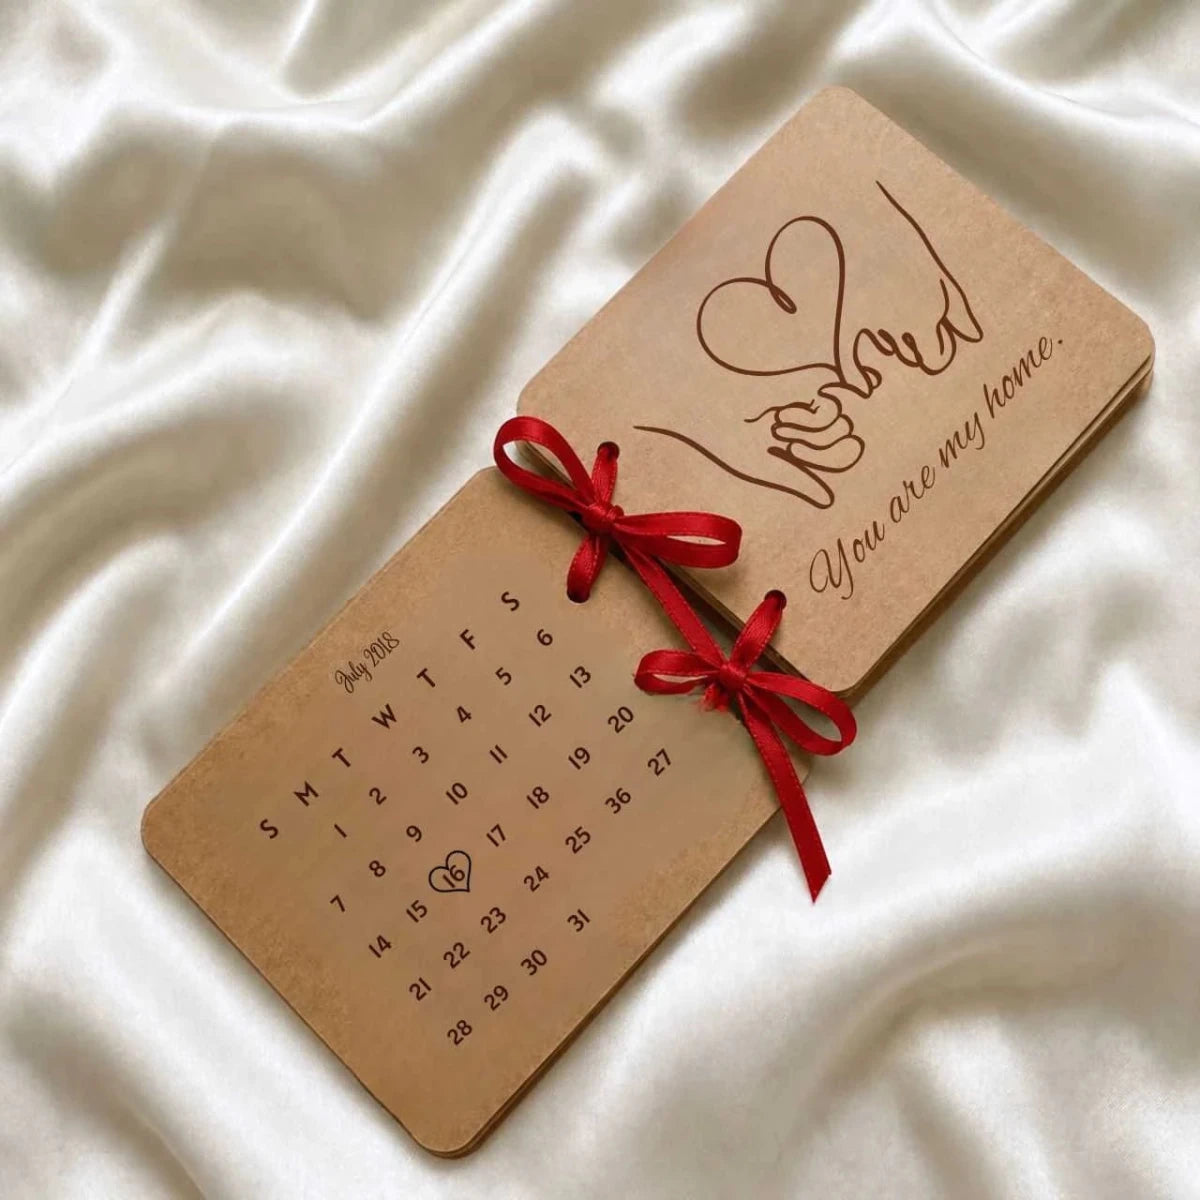 You are my home.
July 2018
S M T W T F S
1 2 3 4 5 6
7 8 9 10 11 12 13
14 15 16 17 18 19 20
21 22 23 24 25 36 27
28 29 30 31